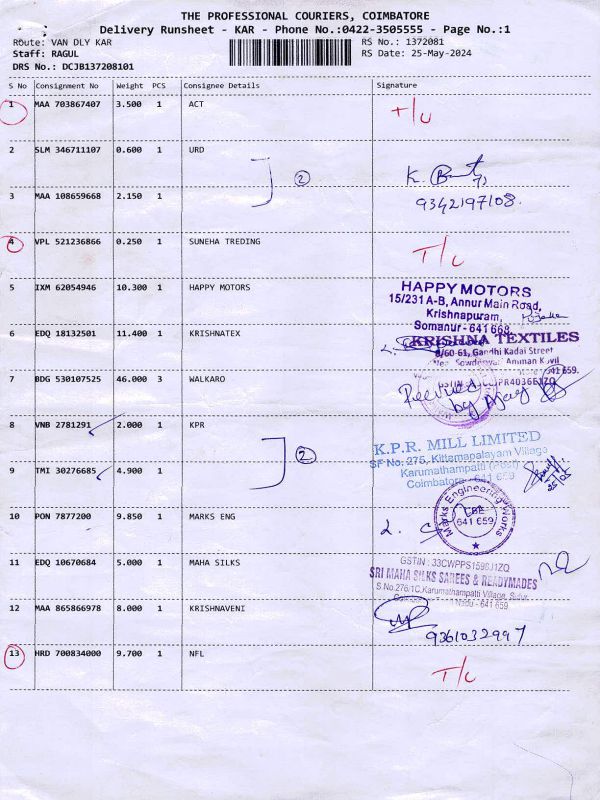 THE PROFESSIONAL COURIERS, COIMBATORE
Delivery Runsheet - KAR - Phone No.:0422-3505555 - Page No.:1
Route: VAN DLY KAR RS No.: 1372081
Staff: RAGUL RS Date: 25-May-2024
DRS No.: DCJB137208101
S No Consignment No Weight PCS Consignee Details Signature
1 MAA 703867407 3.500 1 ACT T/C
2 SLM 346711107 0.600 1 URD
2
K.
3 MAA 108659668 2.150 1 9342197108.
4 VPL 521236866 0.250 1 SUNEHA TREDING T/C
5 IXM 62054946 10.300 1 HAPPY MOTORS
HAPPY MOTORS
15/231 A-B, Annur Main Road,
Krishnapuram,
Somanur - 641 668
6 EDQ 18132501 11.400 1 KRISHNATEX
KRISHNA TEXTILES
Gandhi Kadai Street
Amman Kovil
641 659.
7 BDG 530107525 46.000 3 WALKARO
by
8 VNB 2781291 2.000 1 KPR
2
K.P.R. MILL LIMITED
SF No: 275, Kittampalayam Village
Karumathampatti (Post)
Coimbatore
9 TMI 30276685 4.900 1
10 PON 7877200 9.850 1 MARKS ENG
Marks Engineering Works
CBE
641 659
11 EDQ 10670684 5.000 1 MAHA SILKS
GSTIN : 33CWPPS1598J1ZQ
SRI MAHA SILKS SAREES & READYMADES
S.No.276/1C, Karumathampatti Village, Sulur
Nadu - 641 659
12 MAA 865866978 8.000 1 KRISHNAVENI
9361032997
13 HRD 700834000 9.700 1 NFL T/C